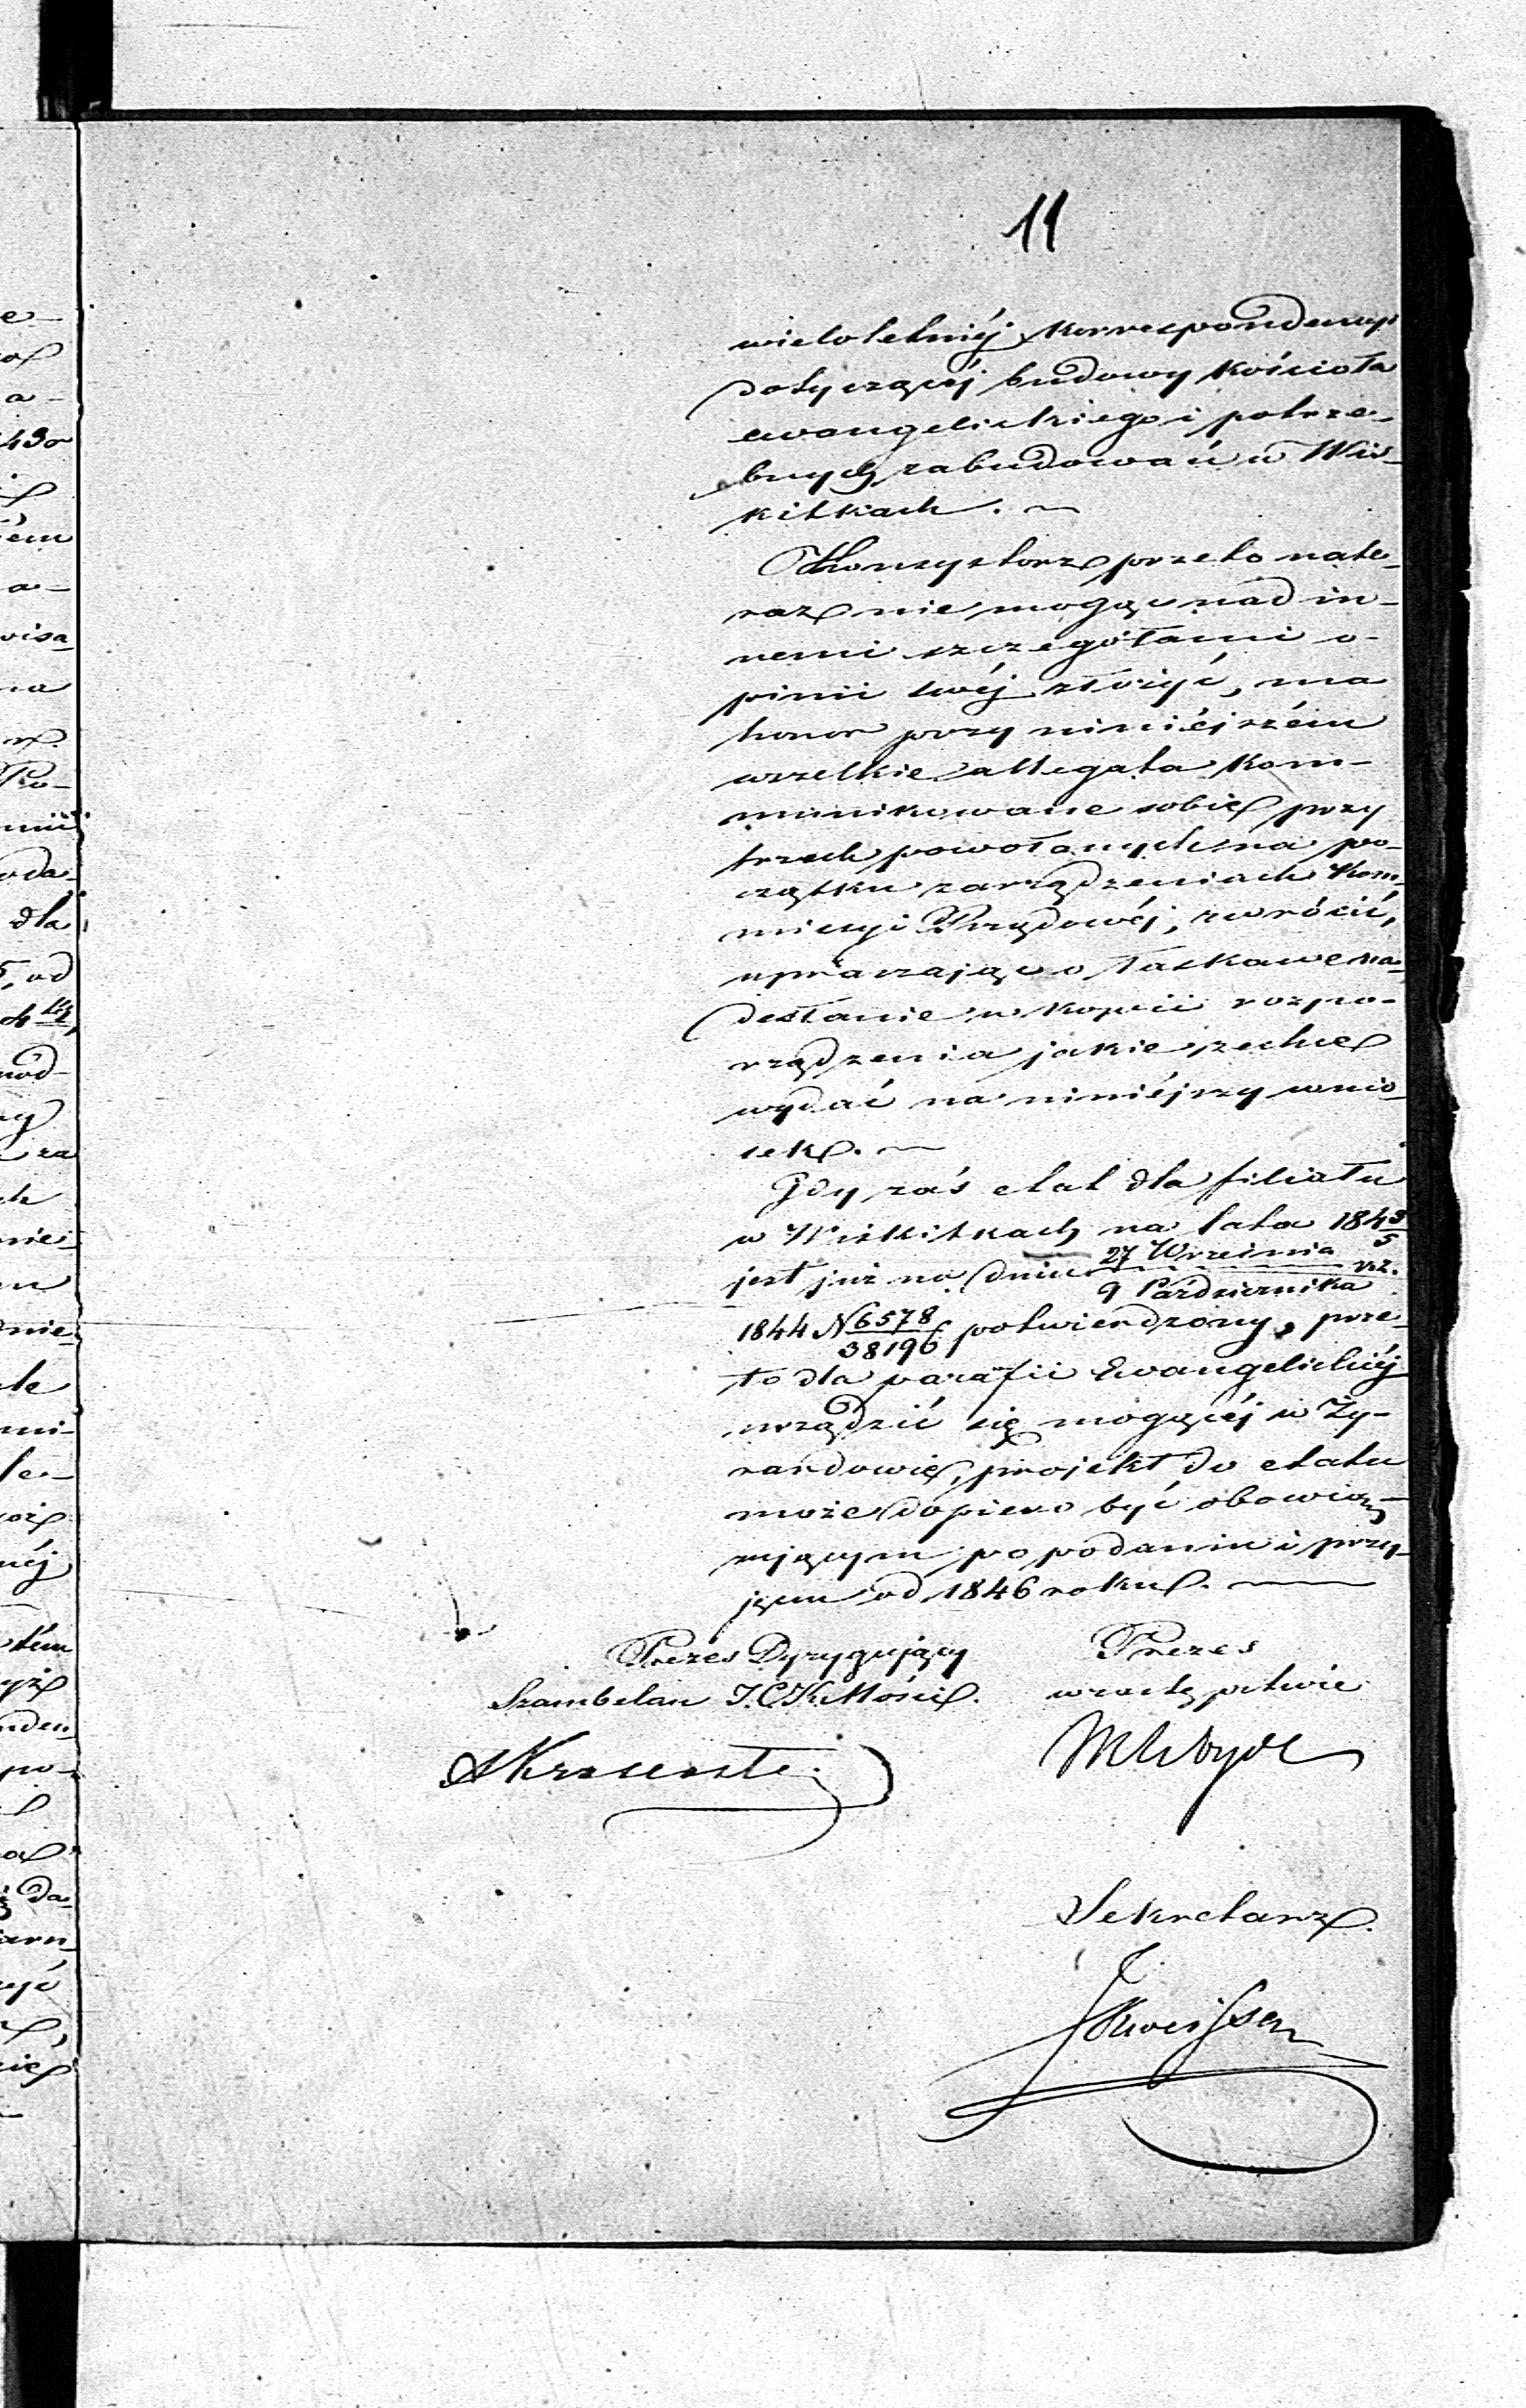 11
wieloletniéj korrespondencyi
dotyczącéj budowy kościoła
ewangelickiego i potrze-
bnych zabudowań w Wis-
kitkach. —
Konsystorz przeto nate-
raz nie mogąc nad in-
nemi szczegółami o-
pinii swéj złożyć, ma
honor przy niniéjszém
wszelkie allegata kom-
munikowane sobie przy
trzech powołanych na po-
czątku zarządzeniach Kom-
missyi Rządowéj, zwrócić,
upraszając o łaskawe na-
desłanie w kopii rozpo-
rządzenia jakie zechce
wydać na niniéjszy wnio-
sek. —
Gdy zaś etat dla filiału
w Wiskitkach na lata 184 3/5
jest już na dniu 27 Września / 9 Października rz.
1844 N 6578/38196 potwierdzony, prze-
to dla parafii Ewangelickiéj
urządzić się mogącéj w Ży-
rardowie, projekt do etatu
może dopiero być obowią-
zującym po podaniu i przy-
jęciu od 1846 roku. —
Prezes Dyrygujący
Szambelan J. C. K. Mości.
Prezes
Sekretarz.